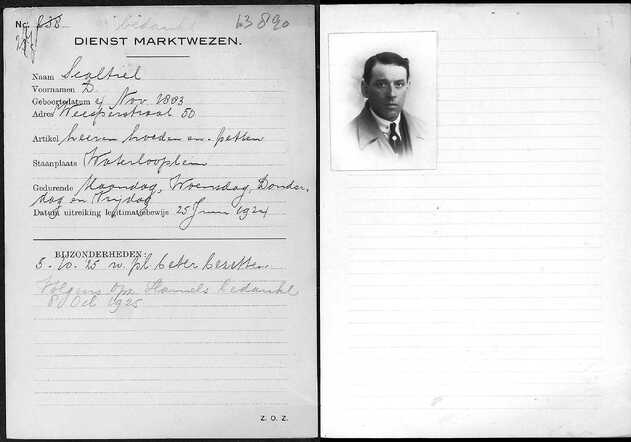 bedankt 63890
No. 238
DIENST MARKTWEZEN.
Naam Sealtiel
Voornamen D.
Geboortedatum 4 Nov. 1893
Adres Weesperstraat 50
Artikel heeren hoeden en petten
Staanplaats Waterlooplein
Gedurende Maandag, Woensdag, Donder-
dag en Vrijdag
Datum uitreiking legitimatiebewijs 25 Juni 1924
BIJZONDERHEDEN:
5-10-'25 w. pl. beter bezetten
Volgens opz. bedankt
8 Oct 1925
Z. O. Z.